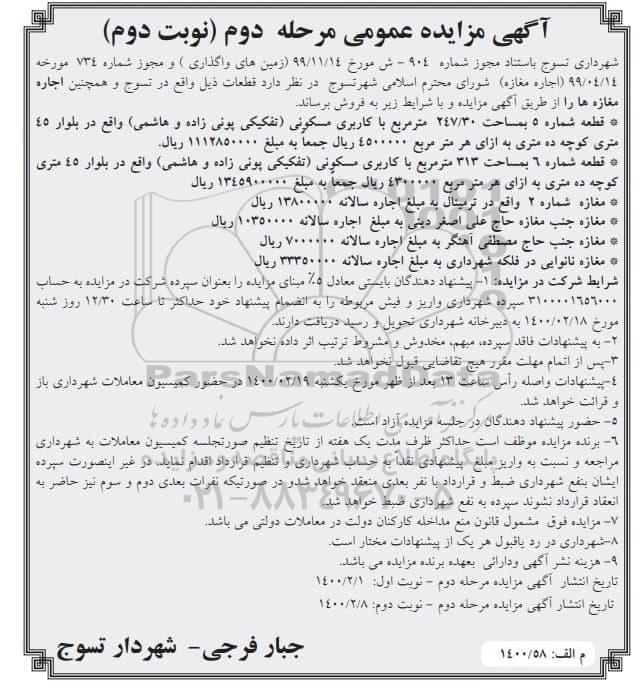 آگهی مزایده عمومی مرحله دوم (نوبت دوم)
شهرداری تسوج باستناد مجوز شماره ۹۰۴ - ش مورخ ۹۹/۱۱/۱۴ (زمین های واگذاری ) و مجوز شماره ۷۳۴ مورخه
۹۹/۰۴/۱۴ (اجاره مغازه) شورای محترم اسلامی شهرتسوج در نظر دارد قطعات ذیل واقع در تسوج و همچنین اجاره
مغازه ها را از طریق آگهی مزایده و با شرایط زیر به فروش برساند.
* قطعه شماره ۵ بمساحت ۲۴۷/۳۰ مترمربع با کاربری مسکونی (تفکیکی پونی زاده و هاشمی) واقع در بلوار ۴۵
متری کوچه ده متری به ازای هر متر مربع ۴۵۰۰۰۰۰ ریال جمعاً به مبلغ ۱۱۱۲۸۵۰۰۰۰ ریال.
* قطعه شماره ۶ بمساحت ۳۱۳ مترمربع با کاربری مسکونی (تفکیکی پونی زاده و هاشمی) واقع در بلوار ۴۵ متری
کوچه ده متری به ازای هر متر مربع ۴۳۰۰۰۰۰ ریال جمعاً به مبلغ ۱۳۴۵۹۰۰۰۰۰ ریال
* مغازه شماره ۲ واقع در ترمینال به مبلغ اجاره سالانه ۱۳۸۰۰۰۰۰ ریال
* مغازه جنب مغازه حاج علی اصغر دینی به مبلغ اجاره سالانه ۱۰۳۵۰۰۰۰ ریال
* مغازه جنب حاج مصطفی آهنگر به مبلغ اجاره سالانه ۷۰۰۰۰۰۰ ریال
* مغازه نانوایی در فلکه شهرداری به مبلغ اجاره سالانه ۳۳۳۵۰۰۰۰ ریال
شرایط شرکت در مزایده: ۱- پیشنهاد دهندگان بایستی معادل ۵٪ مبنای مزایده را بعنوان سپرده شرکت در مزایده به حساب
۳۱۰۰۰۰۱۶۵۶۰۰۰ سپرده شهرداری واریز و فیش مربوطه را به انضمام پیشنهاد خود حداکثر تا ساعت ۱۲/۳۰ روز شنبه
مورخ ۱۴۰۰/۰۲/۱۸ به دبیرخانه شهرداری تحویل و رسید دریافت دارند.
۲- به پیشنهادات فاقد سپرده، مبهم، مخدوش و مشروط ترتیب اثر داده نخواهد شد.
۳-پس از اتمام مهلت مقرر هیچ تقاضایی قبول نخواهد شد.
۴-پیشنهادات واصله رأس ساعت ۱۳ بعد از ظهر مورخ یکشنبه ۱۴۰۰/۰۲/۱۹ در حضور کمیسیون معاملات شهرداری باز
و قرائت خواهد شد.
۵- حضور پیشنهاد دهندگان در جلسه مزایده آزاد است.
۶- برنده مزایده موظف است حداکثر ظرف مدت یک هفته از تاریخ تنظیم صورتجلسه کمیسیون معاملات به شهرداری
مراجعه و نسبت به واریز مبلغ پیشنهادی نقداً به حساب شهرداری و تنظیم قرارداد اقدام نماید. در غیر اینصورت سپرده
ایشان بنفع شهرداری ضبط و قرارداد با نفر بعدی منعقد خواهد شدو در صورتیکه نفرات بعدی دوم و سوم نیز حاضر به
انعقاد قرارداد نشوند سپرده به نفع شهرداری ضبط خواهد شد.
۷- مزایده فوق مشمول قانون منع مداخله کارکنان دولت در معاملات دولتی می باشد.
۸-شهرداری در رد یاقبول هر یک از پیشنهادات مختار است.
۹- هزینه نشر آگهی ودارائی بعهده برنده مزایده می باشد.
تاریخ انتشار آگهی مزایده مرحله دوم - نوبت اول: ۱۴۰۰/۲/۱
تاریخ انتشار آگهی مزایده مرحله دوم - نوبت دوم: ۱۴۰۰/۲/۸
جبار فرجی- شهردار تسوج
م الف: ۱۴۰۰/۵۸
ParsNamadData
پایگاه اطلاع رسانی مناقصه و مزایده
۰۲۱-۸۸۳۴۹۶۷۰-۵